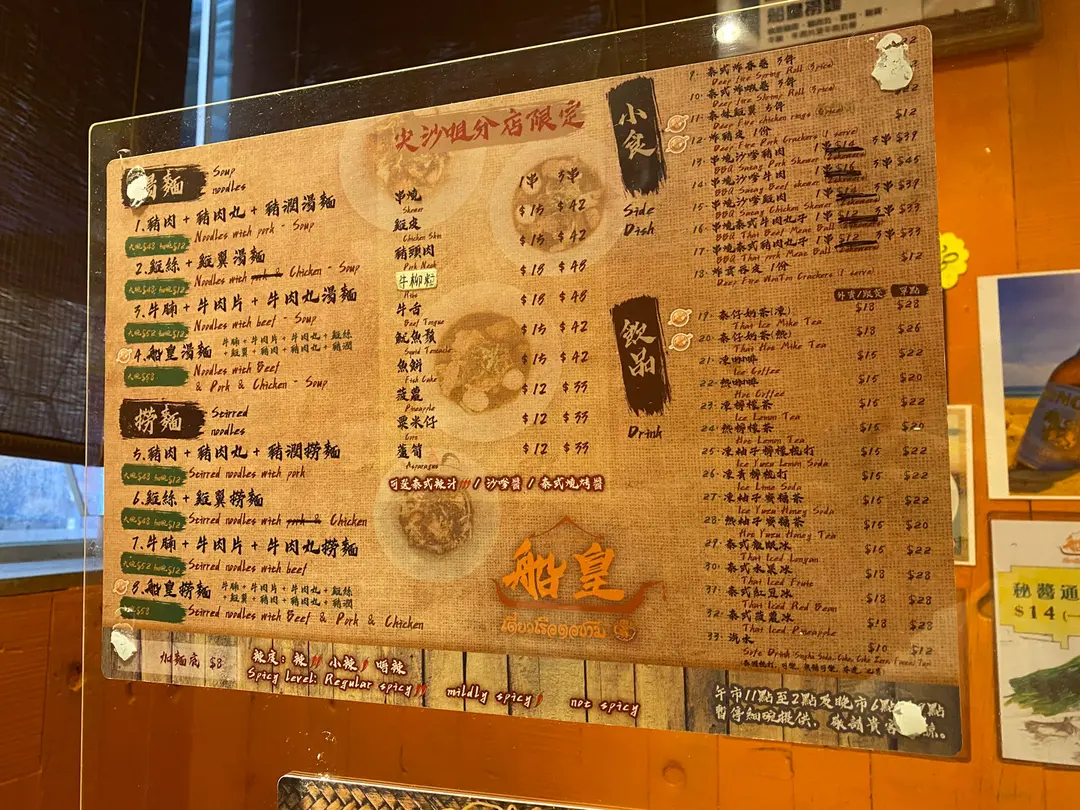 尖沙咀分店限定
湯麵
Soup
noodles
1.豬肉 + 豬肉丸 + 豬潤湯麵
Noodles with pork - Soup
2.雞絲 + 雞翼湯麵
Noodles with pork & Chicken - Soup
3.牛腩 + 牛肉片 + 牛肉丸湯麵
Noodles with beef - Soup
4.船皇湯麵
牛腩 + 牛肉片 + 牛肉丸 + 雞絲
+ 雞翼 + 豬肉 + 豬肉丸 + 豬潤
Noodles with Beef
& Pork & Chicken - Soup
撈麵
Stirred
noodles
5.豬肉 + 豬肉丸 + 豬潤撈麵
Stirred noodles with pork
6.雞絲 + 雞翼撈麵
Stirred noodles with pork & Chicken
7.牛腩 + 牛肉片 + 牛肉丸撈麵
Stirred noodles with beef
8.船皇撈麵
牛腩 + 牛肉片 + 牛肉丸 + 雞絲
+ 雞翼 + 豬肉 + 豬肉丸 + 豬潤
Stirred noodles with Beef & Pork & Chicken
加麵底 $8
辣度: 辣 小辣 唔辣
Spicy Level: Regular spicy mildly spicy not spicy
串燒 1串 3串
Skewer
雞皮 $15 $42
Chicken Skin
豬頸肉 $15 $42
Pork Neck
牛柳粒 $18 $48
牛舌 $18 $48
Beef Tongue
魷魚鬚 $15 $42
Squid Tentacle
魚餅 $15 $42
Fish Cake
菠蘿 $12 $33
Pineapple
粟米仔 $12 $33
蘆筍 $12 $33
Asparagus
可選泰式辣汁 / 沙嗲醬 / 泰式燒烤醬
船皇
小食
Side
Dish
9. 泰式炸春卷 3件
Deep Fire Spring Roll (3pice)
10. 泰式炸蝦卷 3件
Deep Fire Shrimp Roll (3pice)
11. 泰妹雞翼 5件
12. 炸豬皮 1份 $12
Deep Fire Pork Crackers (1 serve)
13. 串燒沙嗲豬肉 1串 $14 3串 $39
14. 串燒沙嗲牛肉 3串 $45
15. 串燒沙嗲雞肉 3串 $39
16. 串燒泰式牛肉丸子 1串 $12 3串 $33
BBQ Thai Beef Meat Ball
17. 串燒泰式豬肉丸子 1串 $12 3串 $33
BBQ Thai pork Meat Ball
18. 炸雲吞皮 1份 $12
Deep Fire WonTon Crackers (1 serve)
飲品
Drink
單點
19. 泰仔奶茶(凍) $18 $28
Thai Ice Milk Tea
20. 泰仔奶茶(熱) $18 $26
Thai Hot Milk Tea
21. 凍咖啡 $15 $22
Ice Coffee
22. 熱咖啡 $15 $20
Hot Coffee
23. 凍檸檬茶 $15 $22
Ice Lemon Tea
24. 熱檸檬茶 $15 $20
Hot Lemon Tea
25. 凍柚子檸檬梳打 $15 $22
Ice Yuzu Lemon Soda
26. 凍青檸梳打 $15 $22
Ice Lime Soda
27. 凍柚子蜜糖茶 $15 $22
Ice Yuzu Honey Soda
28. 熱柚子蜜糖茶 $15 $20
Hot Yuzu Honey Tea
29. 泰式龍眼冰 $15 $22
Thai Iced Longan
30. 泰式水果冰 $18 $28
Thai Iced Fruit
31. 泰式紅豆冰 $18 $28
Thai Iced Red Bean
32. 泰式菠蘿冰 $18 $28
Thai Iced Pineapple
33. 汽水 $10 $12
午市11點至2點及晚市6點
暫停細碗提供，敬請貴客
秘醬通
$14